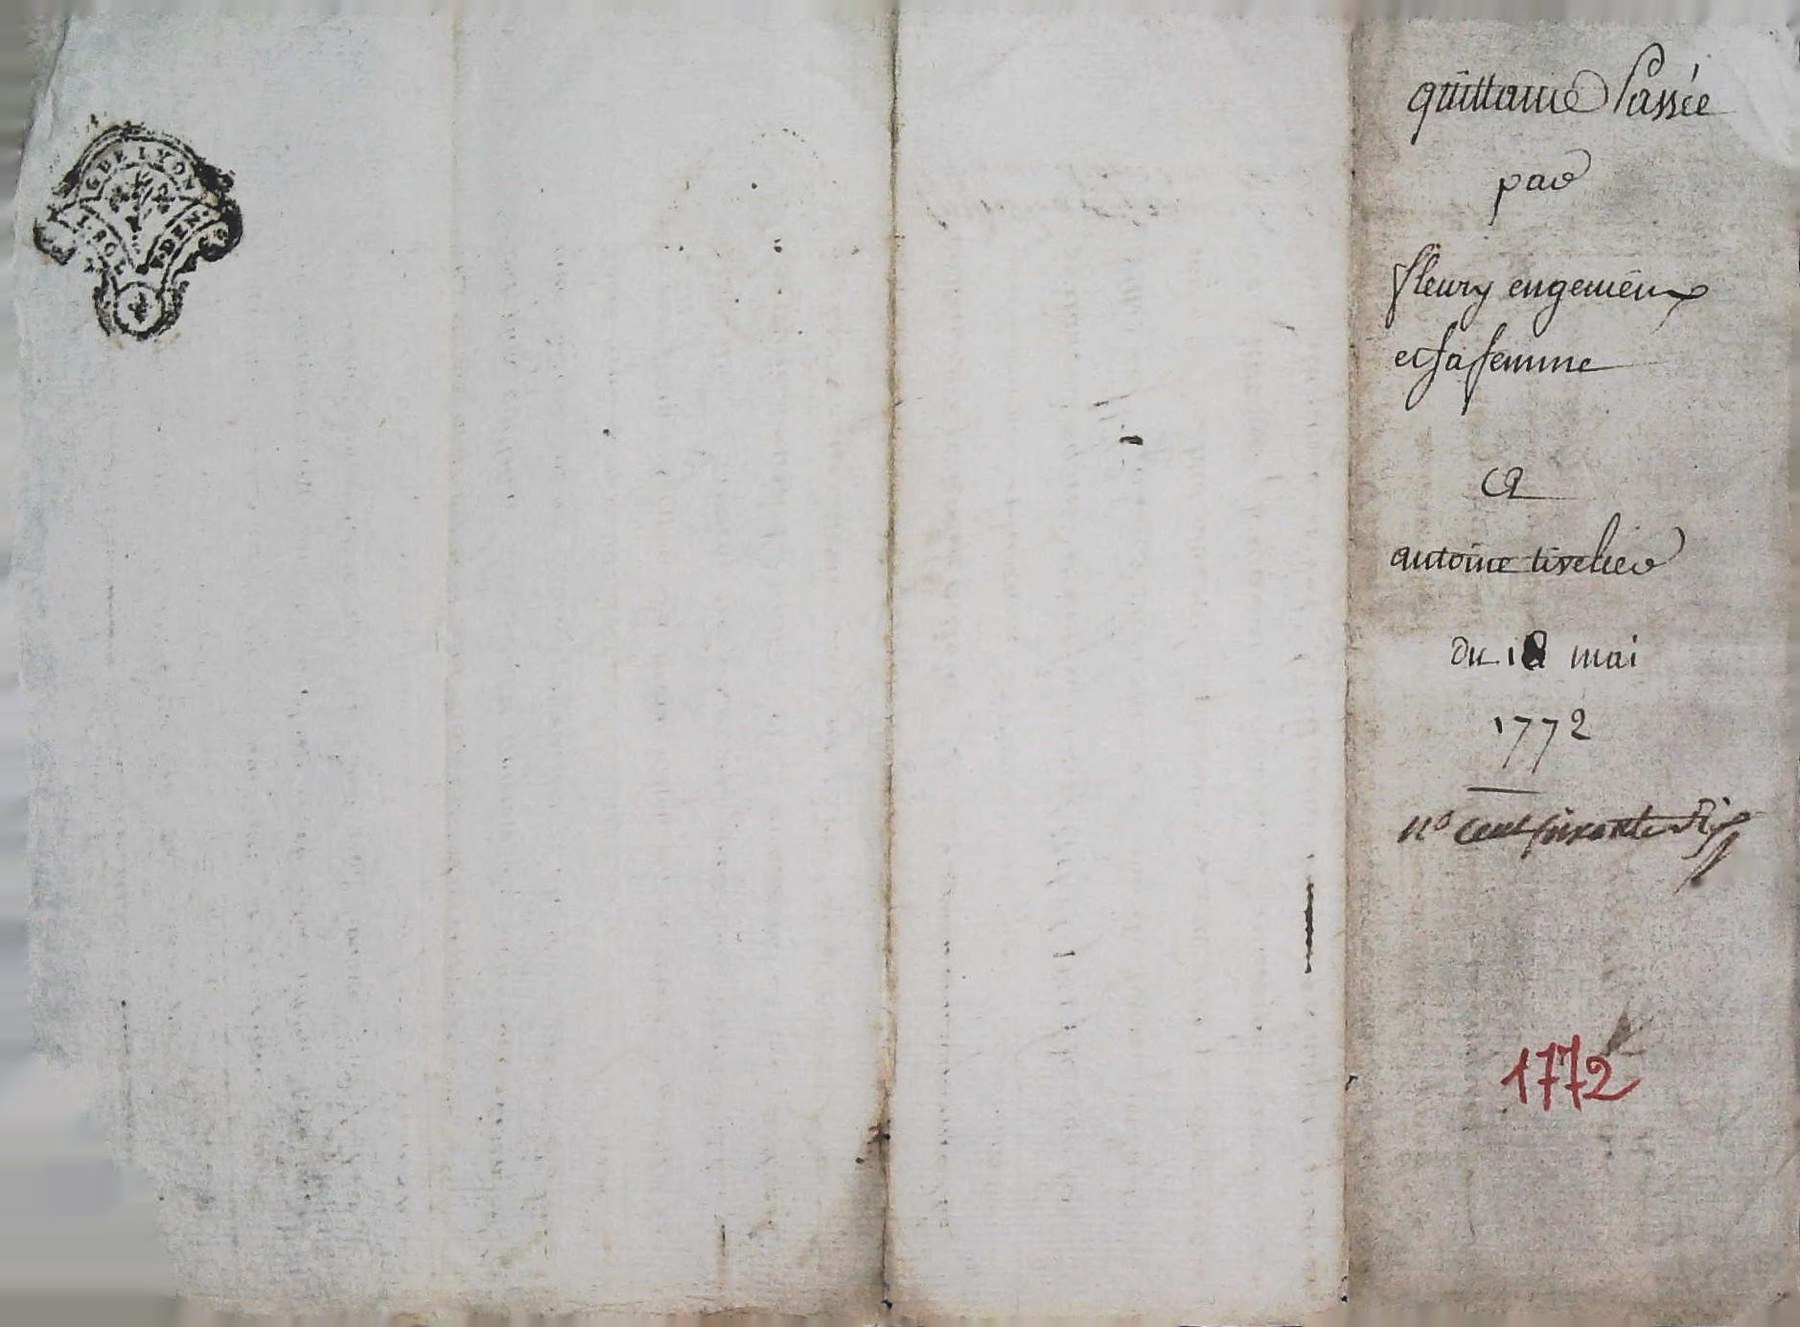 G DE LYON
1 SOL
DEN
quittance Passée
par
fleury engenieux
et sa femme
a
antoine tivelier
du 18 mai
1772
n° cent soixante dix
1772